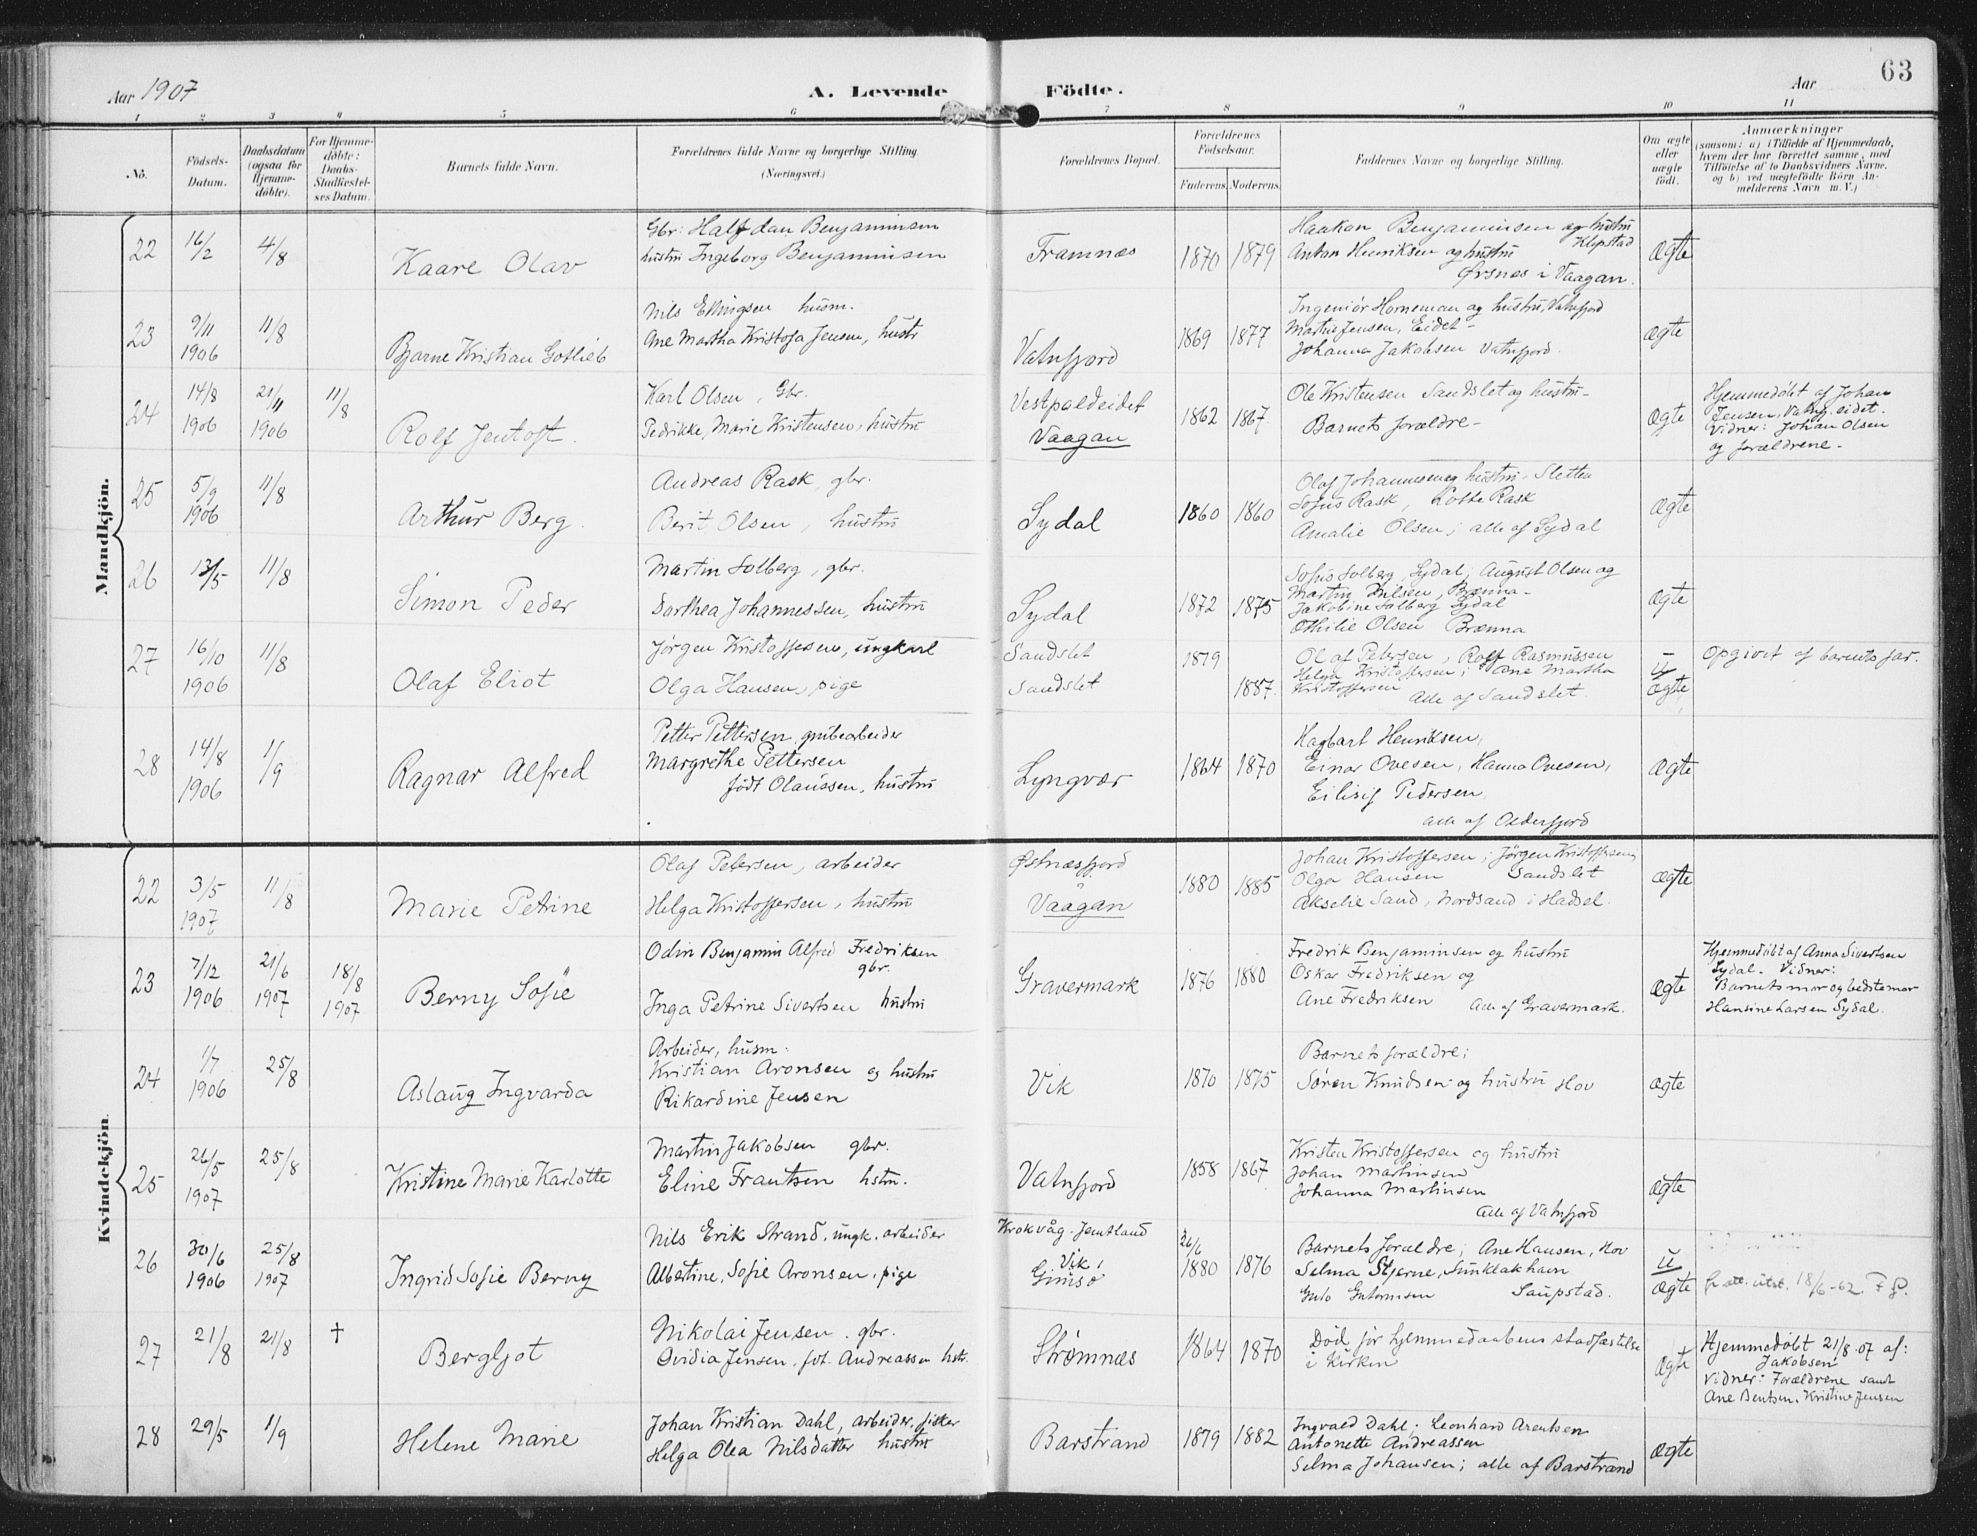 Aar 1907
A. Levende
Födte.
Aar
63
1 2 3 4 5 6 7 8 9 10 11
No.
Födsels-
Datum.
Daabsdatum
(ogsaa for
Hjemme-
döbte).
For Hjemme-
döbte:
Daabs-
Stadfæstel-
ses Datum.
Barnets fulde Navn.
Forældrenes fulde Navne og borgerlige Stilling.
(Næringsvei.)
Forældrenes Bopæl.
Forældrenes
Födselsaar.
Faderens. Moderens.
Faddernes Navne og borgerlige Stilling.
Om ægte
eller
uægte
födt.
Anmærkninger
(saasom: a) i Tilfælde af Hjemmedaab,
hvem der har forrettet samme, med
Tilföielse af to Daabsvidners Navne.
og b) ved uægtefödte Börn An-
melderens Navn m. V.)
Mandkjön.
22
16/2
4/8
Kaare Olav
Gbr: Halfdan Benjaminsen
hustru Ingeborg Benjaminsen
Framnæs
1870
1879
Haakon Benjaminsen og hustru
Klepstad
Anton Henriksen og hustru
Ørsnes i Vaagan.
ægte
23
9/11
1906
11/8
Bjarne Kristian Gotlieb
Nils Ellingsen husm.
Ane Martha Kristofa Jensen, hustr
Vatnfjord
1869
1877
Ingeniør Horneman og hustru, Vatnfjord
Martin Jensen, Eidet -
Johanna Jakobsen Vatnfjord.
ægte
24
14/8
1906
21/11
1906
11/8
Rolf Jentoft.
Karl Olsen, Gbr.
Pedrikke, Marie Kristensen, hustru
Vestpoldeidet
Vaagan
1862
1867.
Ole Kristensen Sandslet og hustru -
Barnets forældre -
ægte
Hjemmedøbt af Johan
Jensen, Vatnf. eidet.
Vidner: Johan Olsen
og forældrene -
25
5/9
1906
11/8
Arthur Berg.
Andreas Rask, gbr.
Berit Olsen, hustru
Sydal
1860
1860
Olaf Johannesen og hustru. Sletten
Sofus Rask, Lotte Rask
Amalie Olsen; alle af Sydal
ægte
26
13/5
11/8
Simon Peder
Martin Solberg, gbr.
Dorthea Johannessen, hustru
Sydal
1872
1875
Sofus Solberg, Sydal; August Olsen og
Martin Nilsen, Brenna -
Jakobine Solberg Sydal
Othilie Olsen Brenna
ægte
27
16/10
1906
11/8
Olaf Eliot
Jørgen Kristoffersen, ungkarl
Olga Hansen, pige
Sandslet
Sandslet
1879
1887.
Olaf Petersen, Rolf Rasmussen
Helga Kristoffersen; Ane Martha
Kristoffersen Alle af Sandslet.
u
ægte
Opgivet af barnets far.
28
14/8
1906
1/9
Ragnar Alfred
Petter Pettersen, grubearbeider
Margrethe Pettersen
født Olaussen, hustru
Lyngvær
1864
1870
Hagbart Henriksen,
Einar Ovesen, Hanna Ovesen,
Eilerif Pedersen,
alle af Olderfjord
ægte
Kvindekjön.
22
3/5
1907
11/8
Marie Petrine
Olaf Petersen, arbeider
Helga Kristoffersen, hustru
Østnæsfjord
Vaagan
1880
1885
Johan Kristoffersen; Jørgen Kristoffersen,
Olga Hansen Sandslet
Akselie Sand, Nordsand i Hadsel.
ægte
23
7/12
1906
21/6
1907
18/8
1907
Berny Sofie
Odin Benjamin Alfred Fredriksen
gbr.
Inga Petrine Sivertsen hustru
Gravermark
1876
1880
Fredrik Benjaminsen og hustru
Oskar Fredriksen og
Ane Fredriksen Alle af Gravermark.
ægte
Hjemmedøbt af Anna Sivertsen
Sydal. Vidner:
Barnets mor og bedstemor
Hansine Larsen Sydal.
24
1/7
1906
25/8
Aslaug Ingvarda
Arbeider, husm.
Kristian Aronsen og hustru
Rikardine Jensen
Vik
1870
1875
Barnets forældre;
Søren Knudsen og hustru Hov
ægte
25
26/5
1907
25/8
Kristine Marie Karlotte
Martin Jakobsen gbr.
Eline Frantsen hstm.
Vatnfjord
1858
1867
Kristen Kristoffersen og hustru
Johan Martinsen
Johanna Martinsen
Alle af Vatnfjord
ægte
26
30/6
1906
25/8
1907
Ingrid Sofie Berny
Nils Erik Strand, ungk. arbeider
Albertine, Sofie Aronsen, pige
Krokvåg. Jemtland
Vik,
Gimsø
26/6
1880
1876
Barnets forældre; Ane Hansen, Hov
Selma Stjerne, Sunklakhavn
Guto Gutormsen Saupstad.
u
ægte
att. utst. 18/6-62.
27
21/8
21/8
†
Bergljot
Nikolai Jensen. gbr.
Ovidia Jensen. føt. Andreassen hstr.
Strømnæs
1864
1870
Død før hjemmedaabens stadfæstelse
i Kirken
ægte
Hjemmedøbt 21/8 07 af:
Jakobsen
Vidner: Forældrene samt
Ane Bentsen, Kristine Jensen
28
29/5
1/9
Helene Marie
Johan Kristian Dahl, arbeider, fisker
Helga Olea Nilsdatter hustru
Barstrand
1879
1882
Ingvald Dahl; Leonhard Arentsen
Antonette Andreassen
Selma Johansen; alle af Barstrand
ægte